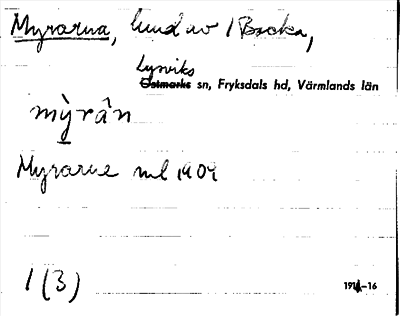 Myrarna, hmd av 1 Backa,
Lysviks
Östmarks sn, Fryksdals hd, Värmlands län
mỳrân
Myrarne ml 1909
1 (3)
1914-16